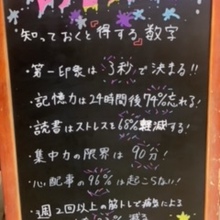 知っておくと得する数字
・第一印象は3秒で決まる!!
・記憶力は24時間後74%忘れる!
・読書はストレスを68%軽減する!
・集中力の限界は90分!
・心配事の96%は起こらない!
・週2回以上の筋トレで病気による